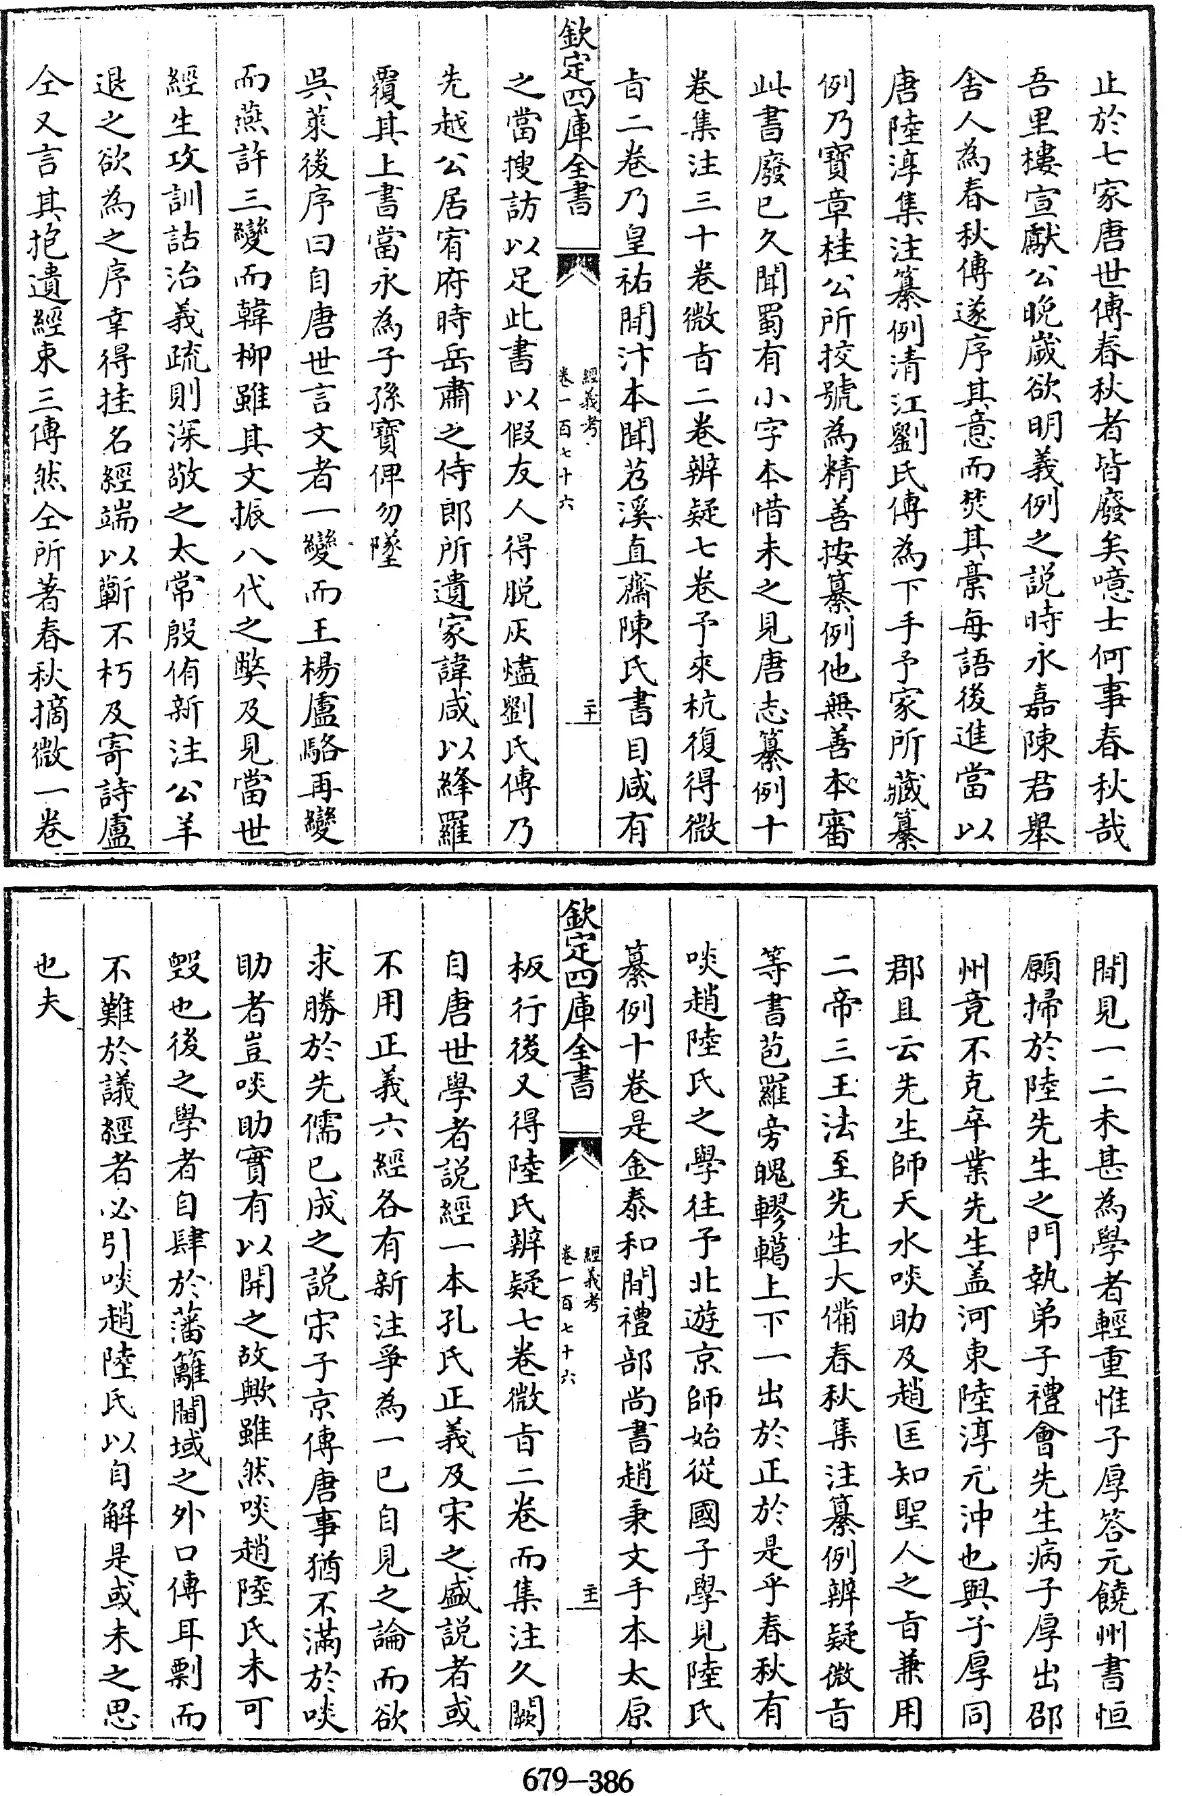 止於七家唐世傳春秋者皆廢矣噫士何事春秋哉
吾里樓宣獻公晚歲欲明義例之說時永嘉陳君舉
舍人為春秋傳遂序其意而焚其稾每語後進當以
唐陸淳集注纂例清江劉氏傳為下手予家所藏纂
例乃寶章桂公所挍號為精善按纂例他無善本審
此書廢已久聞蜀有小字本惜未之見唐志纂例十
卷集注三十卷微㫖二卷辨疑七卷予來杭復得微
㫖二卷乃皇祐間汴本聞苕溪直齋陳氏書目咸有
欽定四庫全書
經義考
卷一百七十六
二十
之當搜訪以足此書以假友人得脫灰燼劉氏傳乃
先越公居宥府時岳肅之侍郎所遺家諱咸以絳羅
覆其上書當永為子孫寶俾勿墜
吳萊後序曰自唐世言文者一變而王楊盧駱再變
而燕許三變而韓柳雖其文振八代之獘及見當世
經生攻訓詁治義疏則深敬之太常殷侑新注公羊
退之欲為之序幸得挂名經端以蘄不朽及寄詩盧
仝又言其抱遺經束三傳然仝所著春秋摘微一卷
間見一二未甚為學者輕重惟子厚答元饒州書恒
願掃於陸先生之門執弟子禮會先生病子厚出邵
州竟不克卒業先生盖河東陸淳元沖也與子厚同
郡且云先生師天水啖助及趙匡知聖人之㫖兼用
二帝三王法至先生大備春秋集注纂例辨疑微㫖
等書苞羅旁魄轇轕上下一出於正於是乎春秋有
啖趙陸氏之學往予北遊京師始從國子學見陸氏
纂例十卷是金泰和間禮部尚書趙秉文手本太原
欽定四庫全書
經義考
卷一百七十六
二十一
板行後又得陸氏辨疑七卷微㫖二卷而集注久闕
自唐世學者說經一本孔氏正義及宋之盛說者或
不用正義六經各有新注爭為一已自見之論而欲
求勝於先儒已成之說宋子京傳唐事猶不滿於啖
助者豈啖助實有以開之故歟雖然啖趙陸氏未可
毁也後之學者自肆於藩籬閫域之外口傳耳剽而
不難於議經者必引啖趙陸氏以自解是或未之思
也夫
679-386